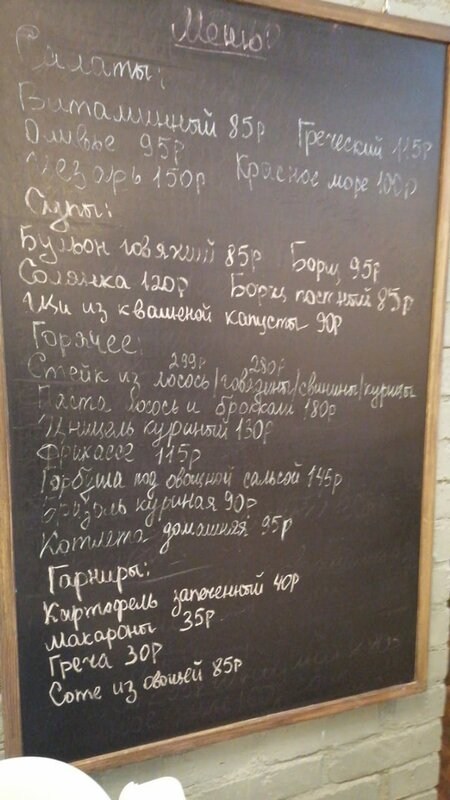 Меню
Салаты:
Витаминный 85р Греческий 115р
Оливье 95р
Цезарь 150р Красное море 100р
Супы:
Бульон говяжий 85р Борщ 95р
Солянка 120р Борщ постный 85р
Щи из квашеной капусты 90р
Горячее:
299р 280р
Стейк из лосось/говядины/свинины/курицы
Паста лосось и брокколи 180р
Шницель куриный 130р
Фрикассе 115р
Горбуша под овощной сальсой 145р
Бризоль куриная 90р
Котлета домашняя 95р
Гарниры:
Картофель запеченный 40р
Макароны 35р
Греча 30р
Соте из овощей 85р